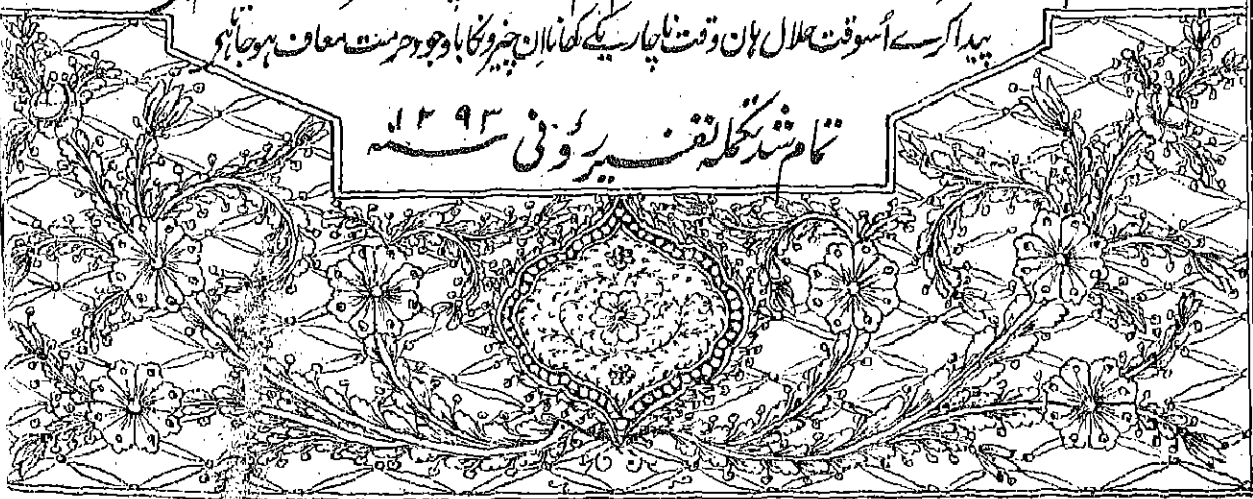 پیدا کرے اُسوقت حلال ہان وقت ناچاریکے کھانا اِن چیزونکا باوجود حرمت معاف ہو جاتا ہی
تمام شد تکملہ تفسیر رؤفی سنہ ۱۲۹۳